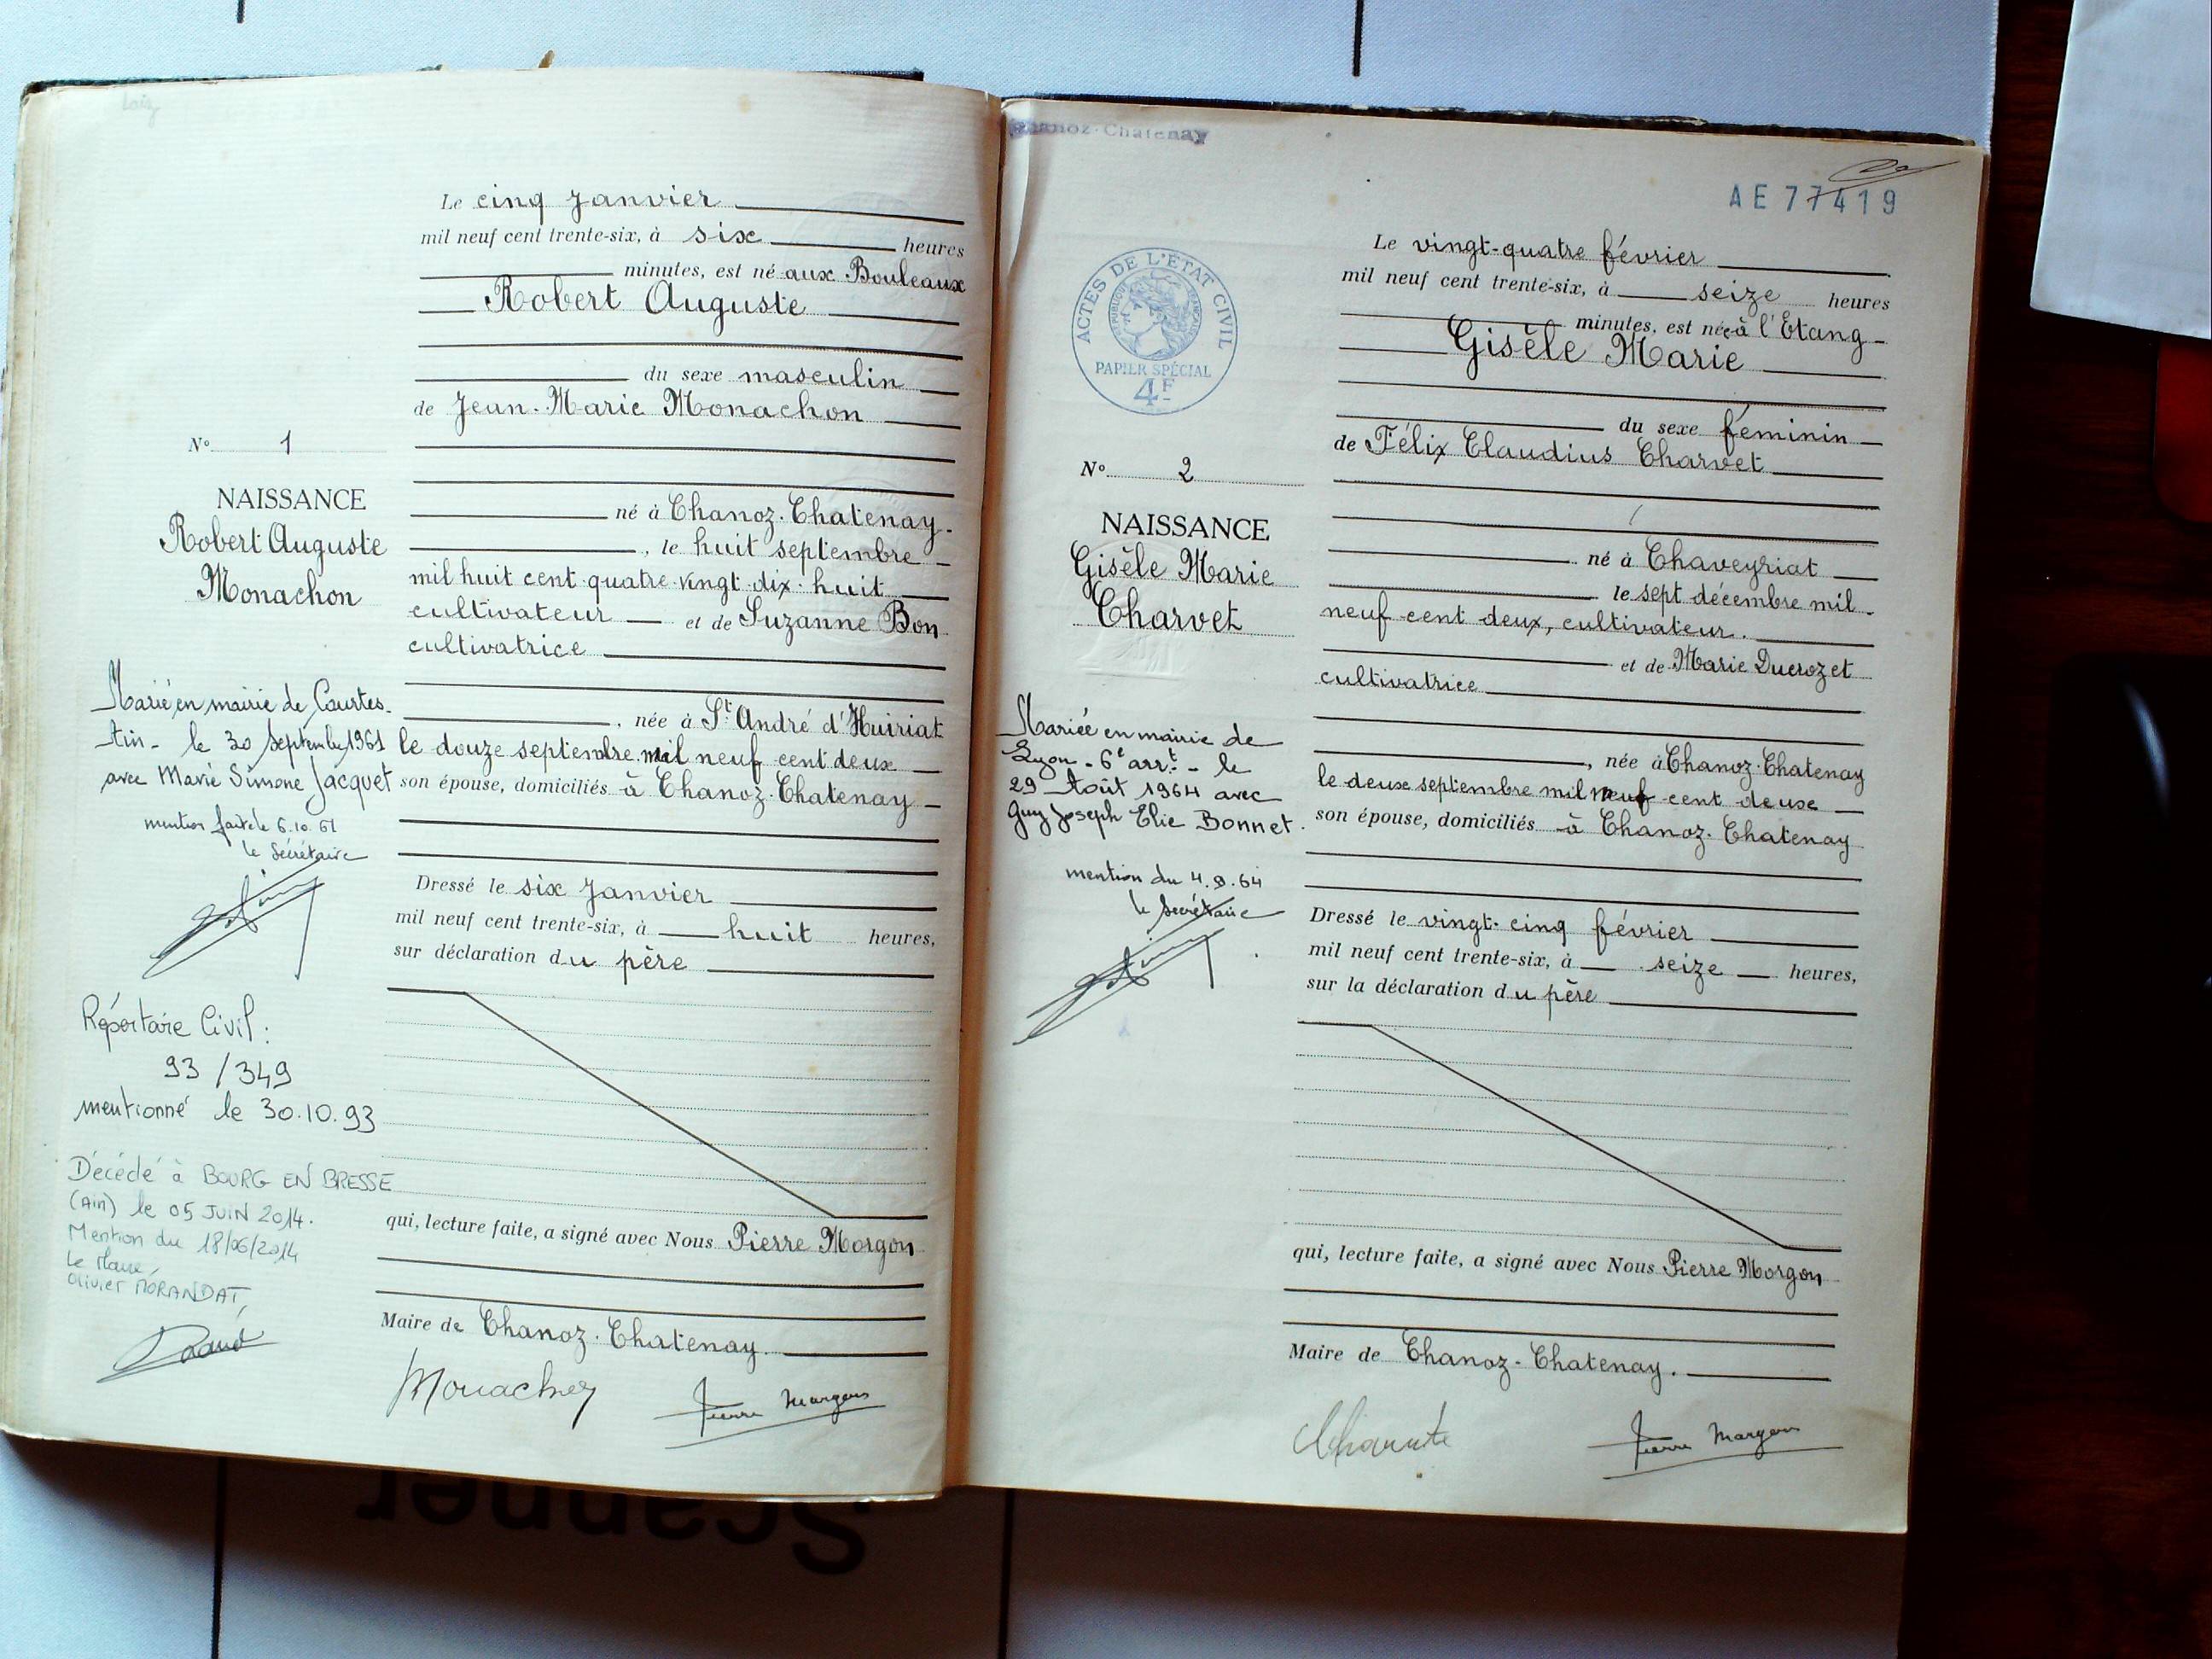 Le cinq Janvier
mil neuf cent trente-six, à six heures
minutes, est né aux Bouleaux
Robert Auguste
du sexe masculin
de Jean-Marie Monachon
né à Chanoz-Chatenay
, le huit septembre
mil huit cent quatre-vingt-dix-huit
cultivateur et de Suzanne Bon
cultivatrice
, née à St André d'Huiriat
le douze septembre mil neuf cent deux
son épouse, domiciliés à Chanoz-Chatenay
Dressé le six Janvier
mil neuf cent trente-six, à huit heures,
sur déclaration du père
qui, lecture faite, a signé avec Nous Pierre Morgon
Maire de Chanoz-Chatenay
Monachon
Pierre Morgon
N° 1
NAISSANCE
Robert Auguste
Monachon
Marié en mairie de Courtes-
Ain - le 30 Septembre 1961
avec Marie Simone Jacquet
mention faite le 6.10.61
le Secrétaire
Répertoire Civil :
93 / 349
mentionné le 30.10.93
Décédé à BOURG EN BRESSE
(Ain) le 05 JUIN 2014.
Mention du 18/06/2014
Le Maire,
Olivier MORANDAT,
Chanoz-Chatenay
AE 77419
ACTES DE L'ÉTAT CIVIL
RÉPUBLIQUE FRANÇAISE
PAPIER SPÉCIAL
4F
Le vingt-quatre février
mil neuf cent trente-six, à seize heures
minutes, est née à l'Etang
Gisèle Marie
du sexe féminin
de Félix Claudius Charvet
né à Chaveyriat
le sept décembre mil
neuf cent deux, cultivateur.
et de Marie Ducrozet
cultivatrice
, née à Chanoz-Chatenay
le deux septembre mil neuf cent deux
son épouse, domiciliés à Chanoz-Chatenay
Dressé le vingt-cinq février
mil neuf cent trente-six, à seize heures,
sur la déclaration du père
qui, lecture faite, a signé avec Nous Pierre Morgon
Maire de Chanoz-Chatenay.
Pierre Morgon
N° 2
NAISSANCE
Gisèle Marie
Charvet
Mariée en mairie de
Lyon - 6e arrt - le
29 Août 1964 avec
Guy Joseph Elie Bonnet.
mention du 4.9.64
le Secrétaire
Scanner